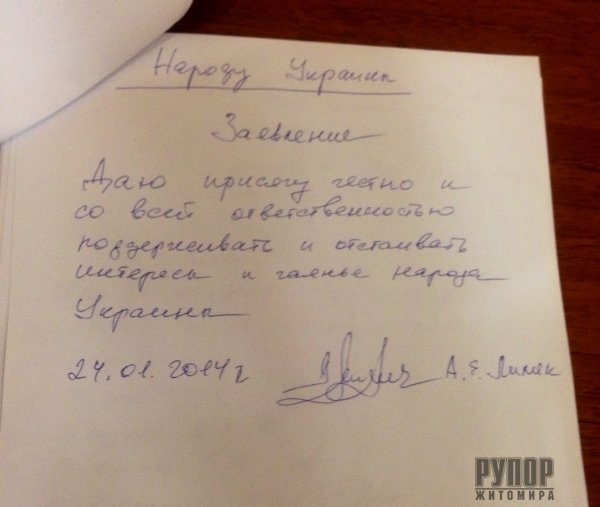 Народу Украины
Заявление
Даю присягу честно и
со всей ответственностью
поддерживать и отстаивать
интересы и чаянье народа
Украины
24.01.2014г А.Е.
РУПОР
ЖИТОМИРА